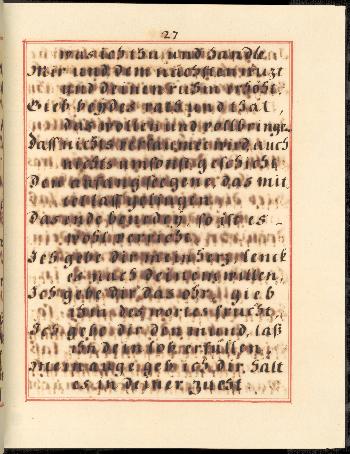 27
was ich thu und handle
Mir und dem nächsten nuzt
und deinen ruhm erhöht.
Gieb beydes rath und that,
das wollen und vollbringe
Dass nichts versäumet wird, auch
nichts umsonst geschicht
Den anfang seegene, das mit
tel lass gelingen
Das ende benedey, so ist es
wohl verricht.
Ich gebe dir mein herz, lenck
es nach deinem willen,
Ich gebe dir das ohr, gieb
ihm des wortes frucht,
Ich gebe dir den mund, laß
ihn dein lob erfüllen,
Mein auge geb ich dir, halt
es in deiner zucht